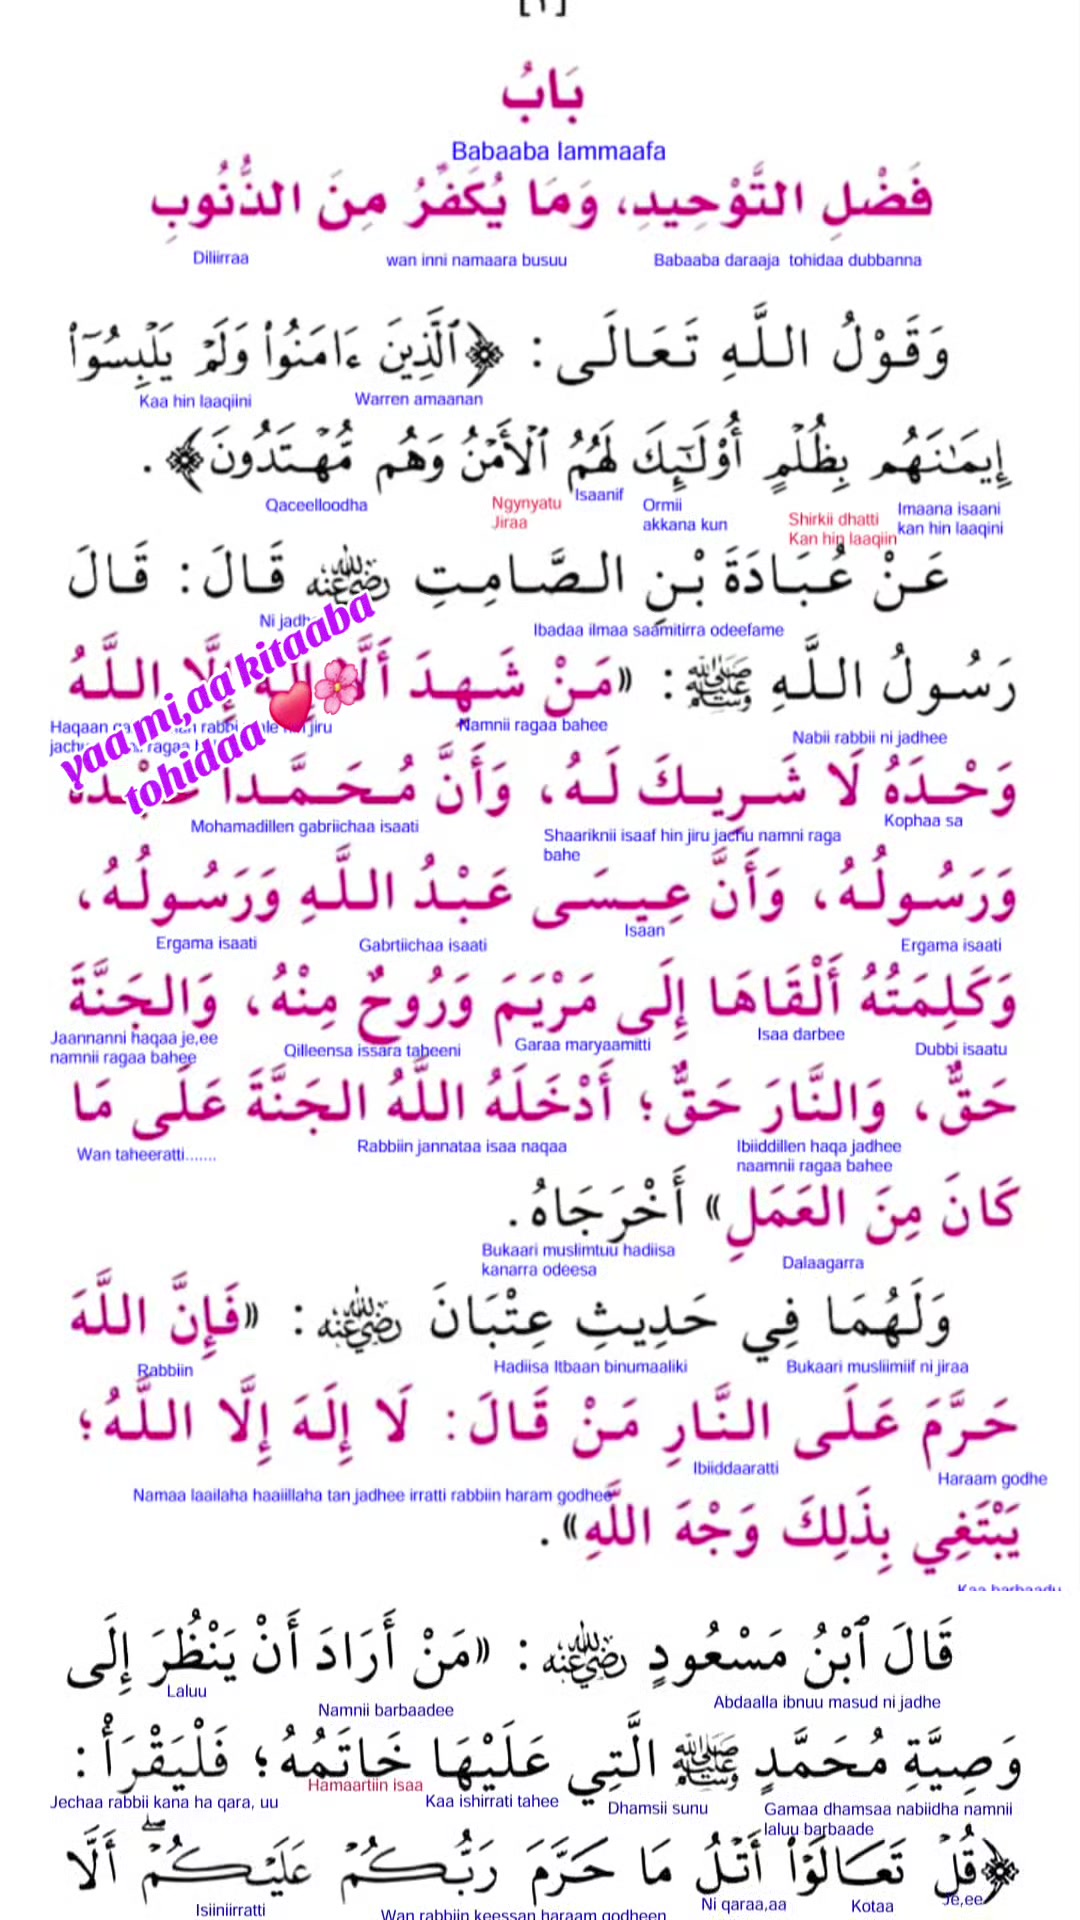 [١]
بَابُ
Babaaba lammaafa
فَضْلِ التَّوْحِيدِ، وَمَا يُكَفِّرُ مِنَ الذُّنُوبِ
Diliirraa wan inni namaara busuu Babaaba daraaja tohidaa dubbanna
وَقَوْلُ اللَّهِ تَعَالَى : ﴿ٱلَّذِينَ ءَامَنُوا۟ وَلَمْ يَلْبِسُوٓا۟
Kaa hin laaqiini Warren amaanan
إِيمَـٰنَهُم بِظُلْمٍ أُو۟لَـٰٓئِكَ لَهُمُ ٱلْأَمْنُ وَهُم مُّهْتَدُونَ﴾ .
Qaceelloodha Ngynyatu Jiraa Isaanif Ormii akkana kun Shirkii dhatti Kan hin laaqiin Imaana isaani kan hin laaqini
عَنْ عُبَادَةَ بْنِ الصَّامِتِ رضي الله عنه قَالَ : قَالَ
Ni Ibadaa ilmaa saamitirra odeefame
رَسُولُ اللَّهِ ﷺ : «مَنْ شَهِدَ أَلَّا إِلَهَ إِلَّا اللَّهُ
Haqaan rabbi jiru Namnii ragaa bahee Nabii rabbii ni jadhee
yaa mi,aa kitaaba
tohidaa
وَحْدَهُ لَا شَرِيكَ لَهُ، وَأَنَّ مُحَمَّداً عَبْدُهُ
Mohamadillen gabriichaa isaati Shaariknii isaaf hin jiru jachu namni raga bahe Kophaa sa
وَرَسُولُهُ، وَأَنَّ عِيسَى عَبْدُ اللَّهِ وَرَسُولُهُ،
Ergama isaati Gabrtiichaa isaati Isaan Ergama isaati
وَكَلِمَتُهُ أَلْقَاهَا إِلَى مَرْيَمَ وَرُوحٌ مِنْهُ، وَالجَنَّةَ
Jaannanni haqaa je,ee namnii ragaa bahee Qilleensa issara taheeni Garaa maryaamitti Isaa darbee Dubbi isaatu
حَقٌّ، وَالنَّارَ حَقٌّ؛ أَدْخَلَهُ اللَّهُ الجَنَّةَ عَلَى مَا
Wan taheeratti....... Rabbiin jannataa isaa naqaa Ibiiddillen haqa jadhee naamnii ragaa bahee
كَانَ مِنَ العَمَلِ» أَخْرَجَاهُ .
Bukaari muslimtuu hadiisa kanarra odeesa Dalaagarra
وَلَهُمَا فِي حَدِيثِ عِتْبَانَ رضي الله عنه : «فَإِنَّ اللَّهَ
Rabbiin Hadiisa Itbaan binumaaliki Bukaari musliimiif ni jiraa
حَرَّمَ عَلَى النَّارِ مَنْ قَالَ : لَا إِلَهَ إِلَّا اللَّهُ؛
Namaa laailaha haaiillaha tan jadhee irratti rabbiin haram godhee Ibiiddaaratti Haraam godhe
يَبْتَغِي بِذَلِكَ وَجْهَ اللَّهِ» .
Kaa barbaadu
قَالَ ٱبْنُ مَسْعُودٍ رضي الله عنه : «مَنْ أَرَادَ أَنْ يَنْظُرَ إِلَى
Laluu Namnii barbaadee Abdaalla ibnuu masud ni jadhe
وَصِيَّةِ مُحَمَّدٍ ﷺ الَّتِي عَلَيْهَا خَاتَمُهُ؛ فَلْيَقْرَأْ :
Jechaa rabbii kana ha qara, uu Hamaartiin isaa Kaa ishirrati tahee Dhamsii sunu Gamaa dhamsaa nabiidha namnii laluu barbaade
﴿قُلْ تَعَالَوْا۟ أَتْلُ مَا حَرَّمَ رَبُّكُمْ عَلَيْكُمْ ۖ أَلَّا
Isiiniirratti Wan rabbiin keessan haraam godheen Ni qaraa,aa Kotaa Je,ee